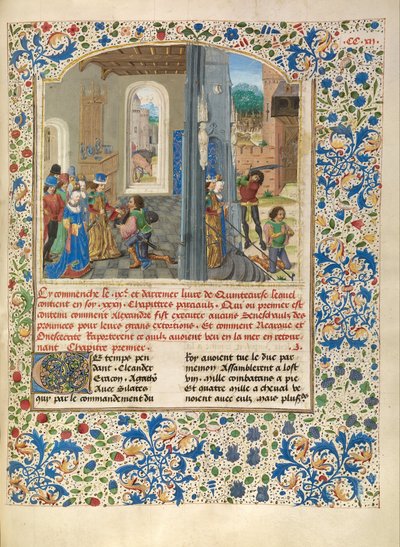 .CC.XII.
Cy commenche le .ixe. et darrenier liure de Quintecurse lequel
contient en soy .xxxi. Chappittres parciaulx. Dui ou premier est
contenu comment Alexandre fist executer aucuns Seneschaulz des
prouinces pour leurs grans extorcions. Et comment Nearque et
Onesecrite Rapporterent ce quilz auoient veu en la mer en retour
nant Chapitre premier. .1.
Es temps pen
dant. Cleander
Eracon. Agathon
Auec Silatez
qui par le commandement du
Roy auoient tue le duc par
menion Assamblerent a lost
vm. mille combatans a pie
Et quatre mille a cheual ve
noient auec eulz mais pluss